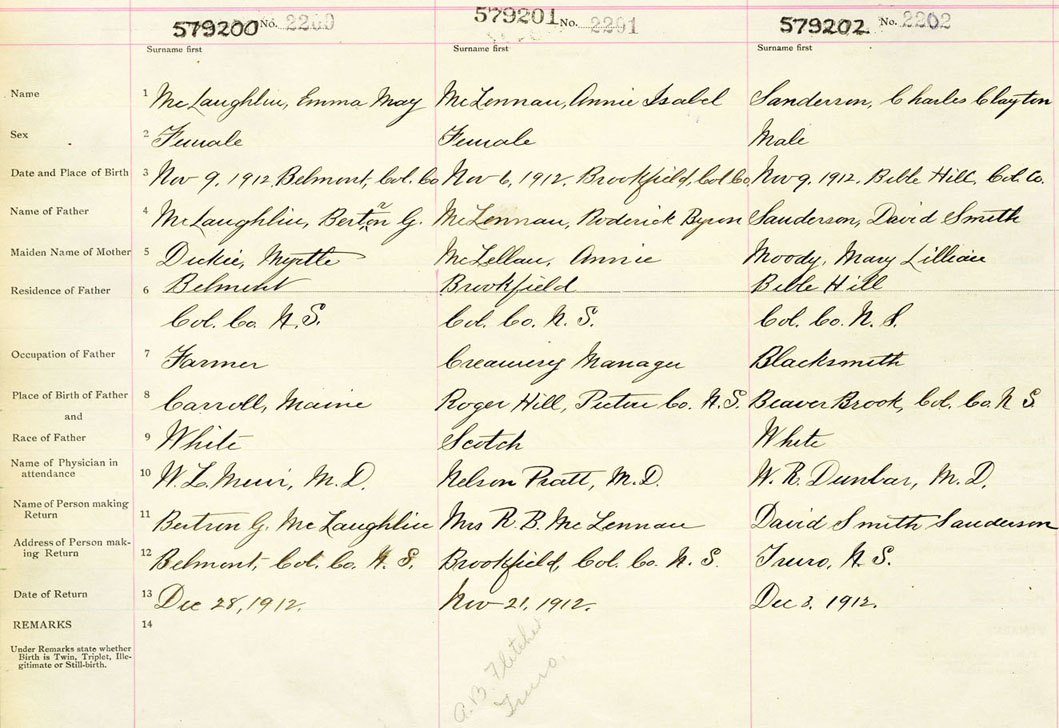 579200 No. 2200 579201 No. 2201 579202 No. 2202
Surname first Surname first Surname first
Name 1 McLaughlin, Emma May McLennan, Annie Isabel Sanderson, Charles Clayton
Sex 2 Female Female Male
Date and Place of Birth 3 Nov 9, 1912, Belmont, Col. Co Nov 6, 1912. Brookfield, Col Co, Nov 9, 1912. Bible Hill, Col. Co.
Name of Father 4 McLaughlin, Berton G. McLennan, Roderick Byron Sanderson, David Smith
Maiden Name of Mother 5 Dickie, Myrtle McLellan, Annie Moody, Mary Lillian
Residence of Father 6 Belmont Brookfield Bible Hill
Col. Co. N.S. Col. Co. N. S. Col. Co. N. S.
Occupation of Father 7 Farmer Creamery Manager Blacksmith
Place of Birth of Father 8 Carroll, Maine Roger Hill, Pictou Co. N.S. Beaver Brook, Col. Co. N S.
and
Race of Father 9 White Scotch White
Name of Physician in
attendance 10 W. L. Muir, M. D. Nelson Pratt, M.D. W. R. Dunbar, M. D.
Name of Person making
Return 11 Bertron G. McLaughlin Mrs R. B. McLennan David Smith Sanderson
Address of Person mak-
ing Return 12 Belmont, Col. Co. N. S. Brookfield, Col. Co. N. S. Truro, N. S.
Date of Return 13 Dec 28, 1912. Nov 21, 1912. Dec 3. 1912.
REMARKS 14
Under Remarks state whether
Birth is Twin, Triplet, Ille-
gitimate or Still-birth.
A. B. Fletcher
Truro.